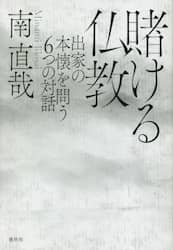 賭ける仏教
出家の
本懐を問う
6つの対話
南 直哉
春秋社